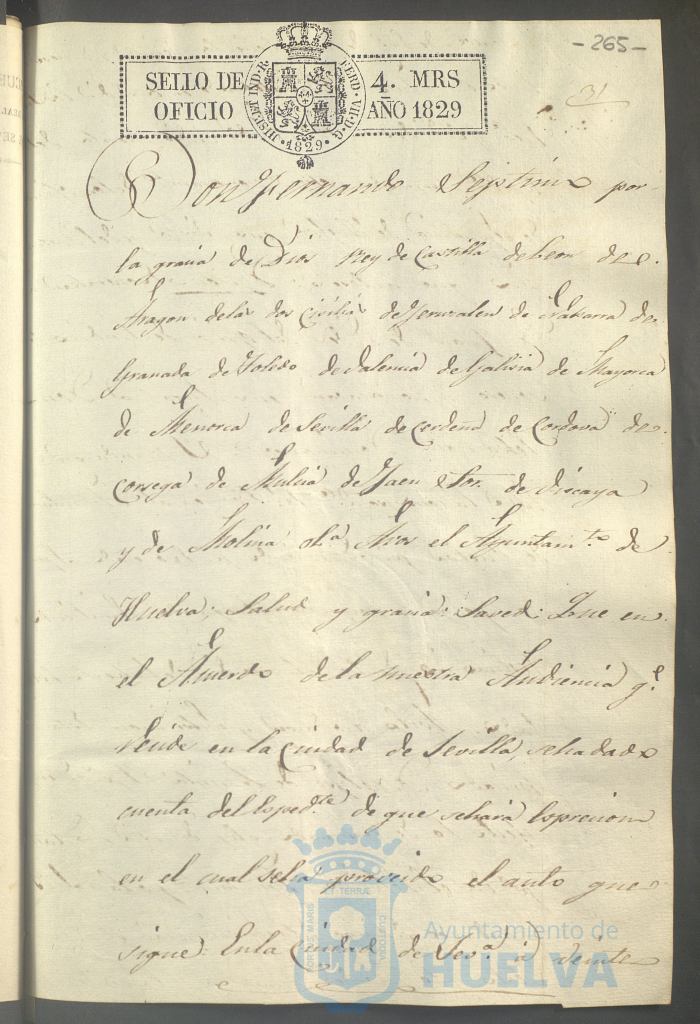 -265-
31
SELLO DE OFICIO
4. MRS AÑO 1829
FERD. VII. D. G.
HISP. ET IND. R.
1829
Don Fernando Septimo por
la gracia de Dios Rey de Castilla de Leon de
Aragon delas dos Cicilias de Jerusalen de Nabarra de
Granada de Toledo de Valencia de Galicia de Mayorca
de Menorca de Sevilla de Cerdeña de Cordova de
Corsega de Mulcia de Jaen Sor. de Viscaya
y de Molina &a. A vos el Ayuntamto. de
Huelva; Salud y gracia: Saved: Que en
el Acuerdo de la nuestra Audiencia q.e
recide en la Ciudad de Sevilla, sehadado
cuenta del Espedte. de que sehará Esprecion
en el cual seha proveido el auto que
sigue: Enla Ciudad de Seva. á veinte
PORTUS MARIS
ET TERRÆ
CUSTODIA
Ayuntamiento de
HUELVA